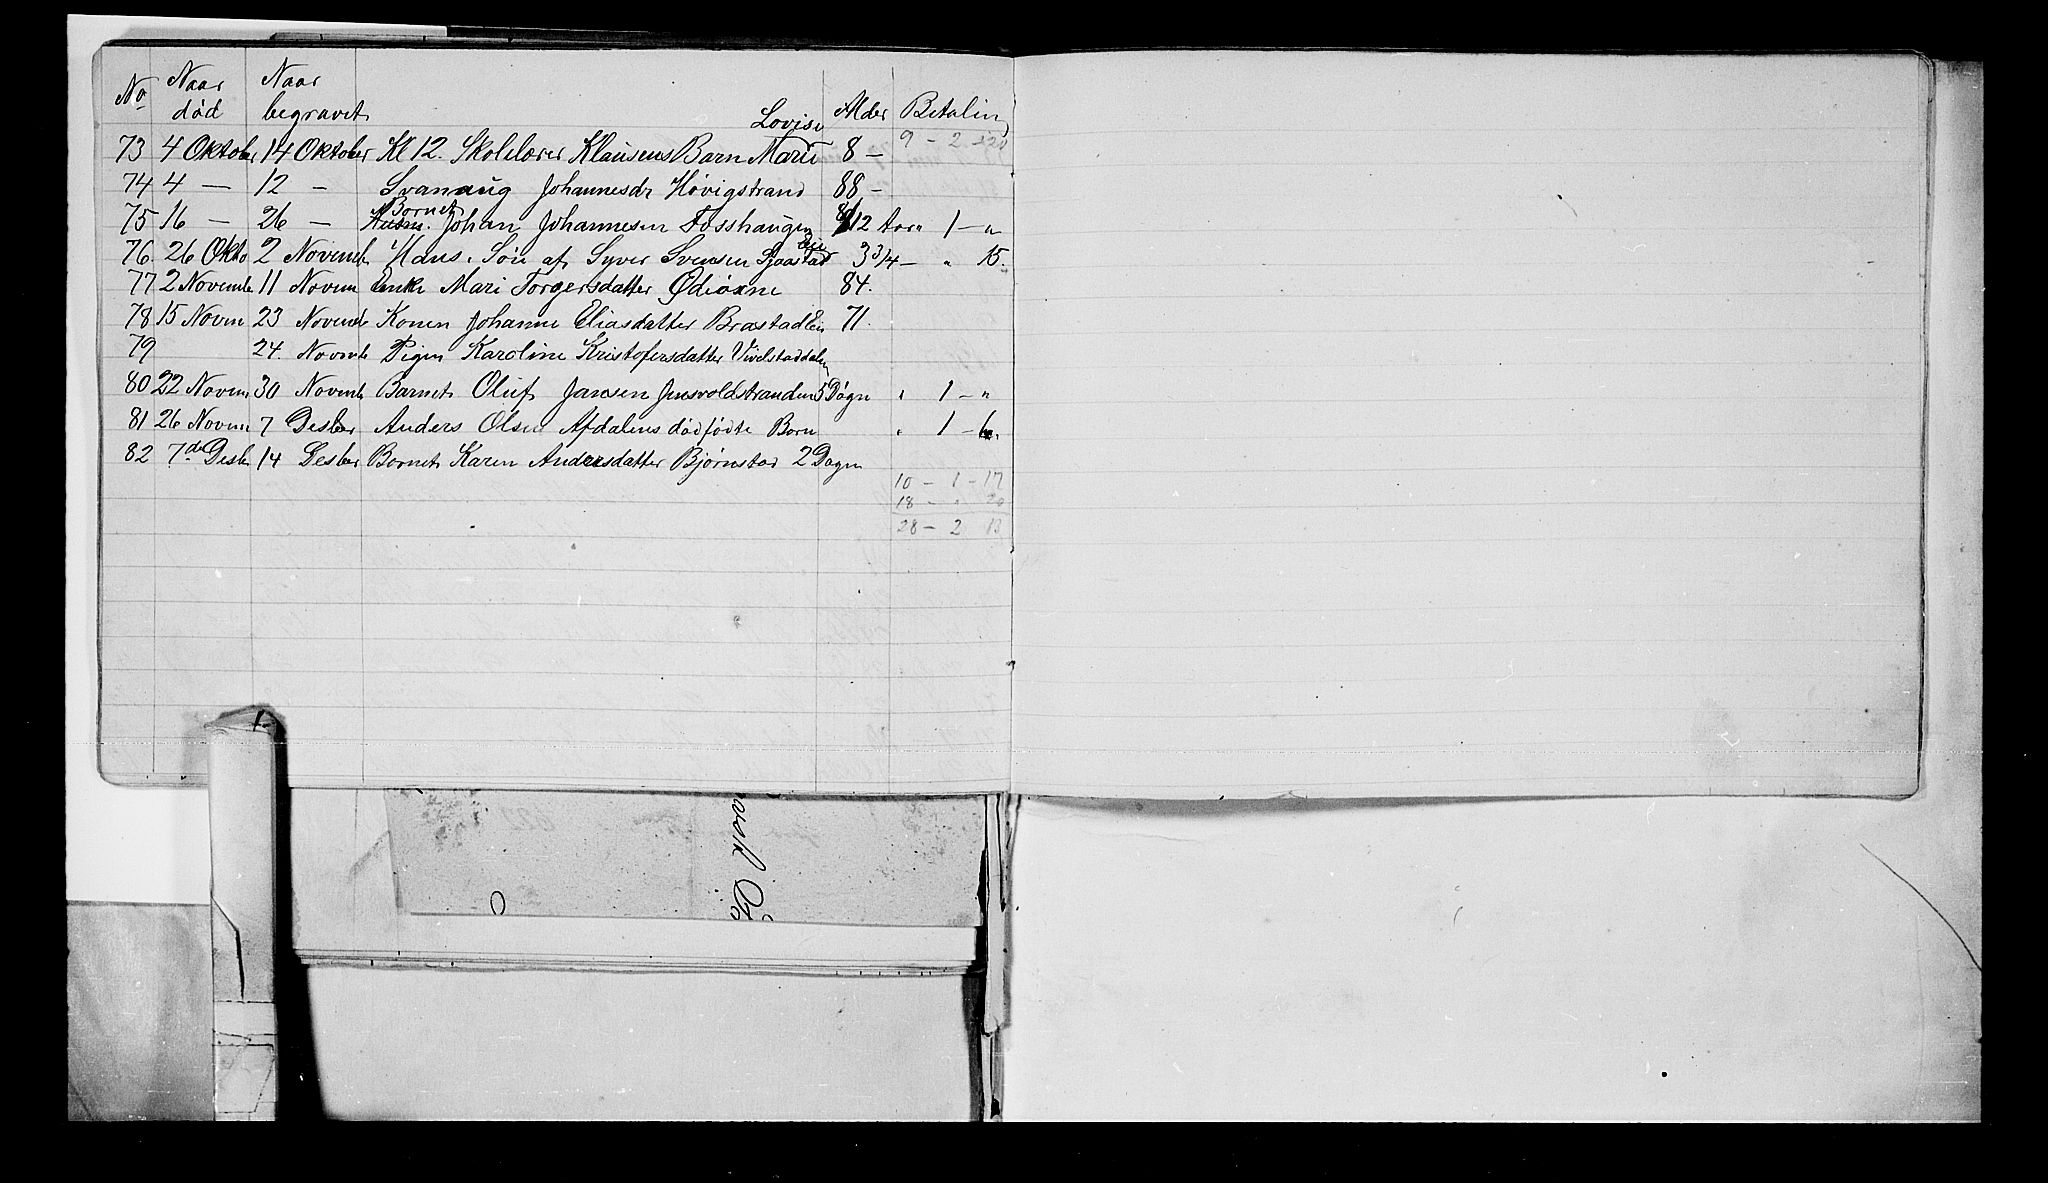 No Naar død Naar begravet Alder Betaling
Lovise
73 4 Oktober 14 Oktober Kl 12. Skolelærer Klausens Barn Marie 8 — 9 - 2
74 4 — 12 — Svanaug Johannesdr Høvigstrand 88 —
Barnet
75 16 — 26 — Johan Johannesen Fosshaugen 12 Aar „ 1 — „
Eie
76. 26 Okto 2 Novemb Hans. Søn af Syver Svensen Sjaastad 3 3/4 — „ 15.
77 2 Novembe 11 Novem Enke Mari Torgersdatter Ødiørne 84.
78 15 Novem 23 Novemb Konen Johanne Eliasdatter Brastad Eie 71.
79 24. Novemb Pigen Karoline Kristofersdatter Vivelstaddalen
80 22 Novem 30 Novemb Barnet Oluf Jansen Jensvoldstranden 5 Døgn „ 1 — „
81 26 Novem 7 Desber Anders Olsen Afdalens dødfødte Barn „ 1 — 6.
82 7de Desb 14 Desber Barnet Karen Andersdatter Bjørnstad 2 Dagen
10 — 1 — 17
18 — „ 20
28 — 2 13